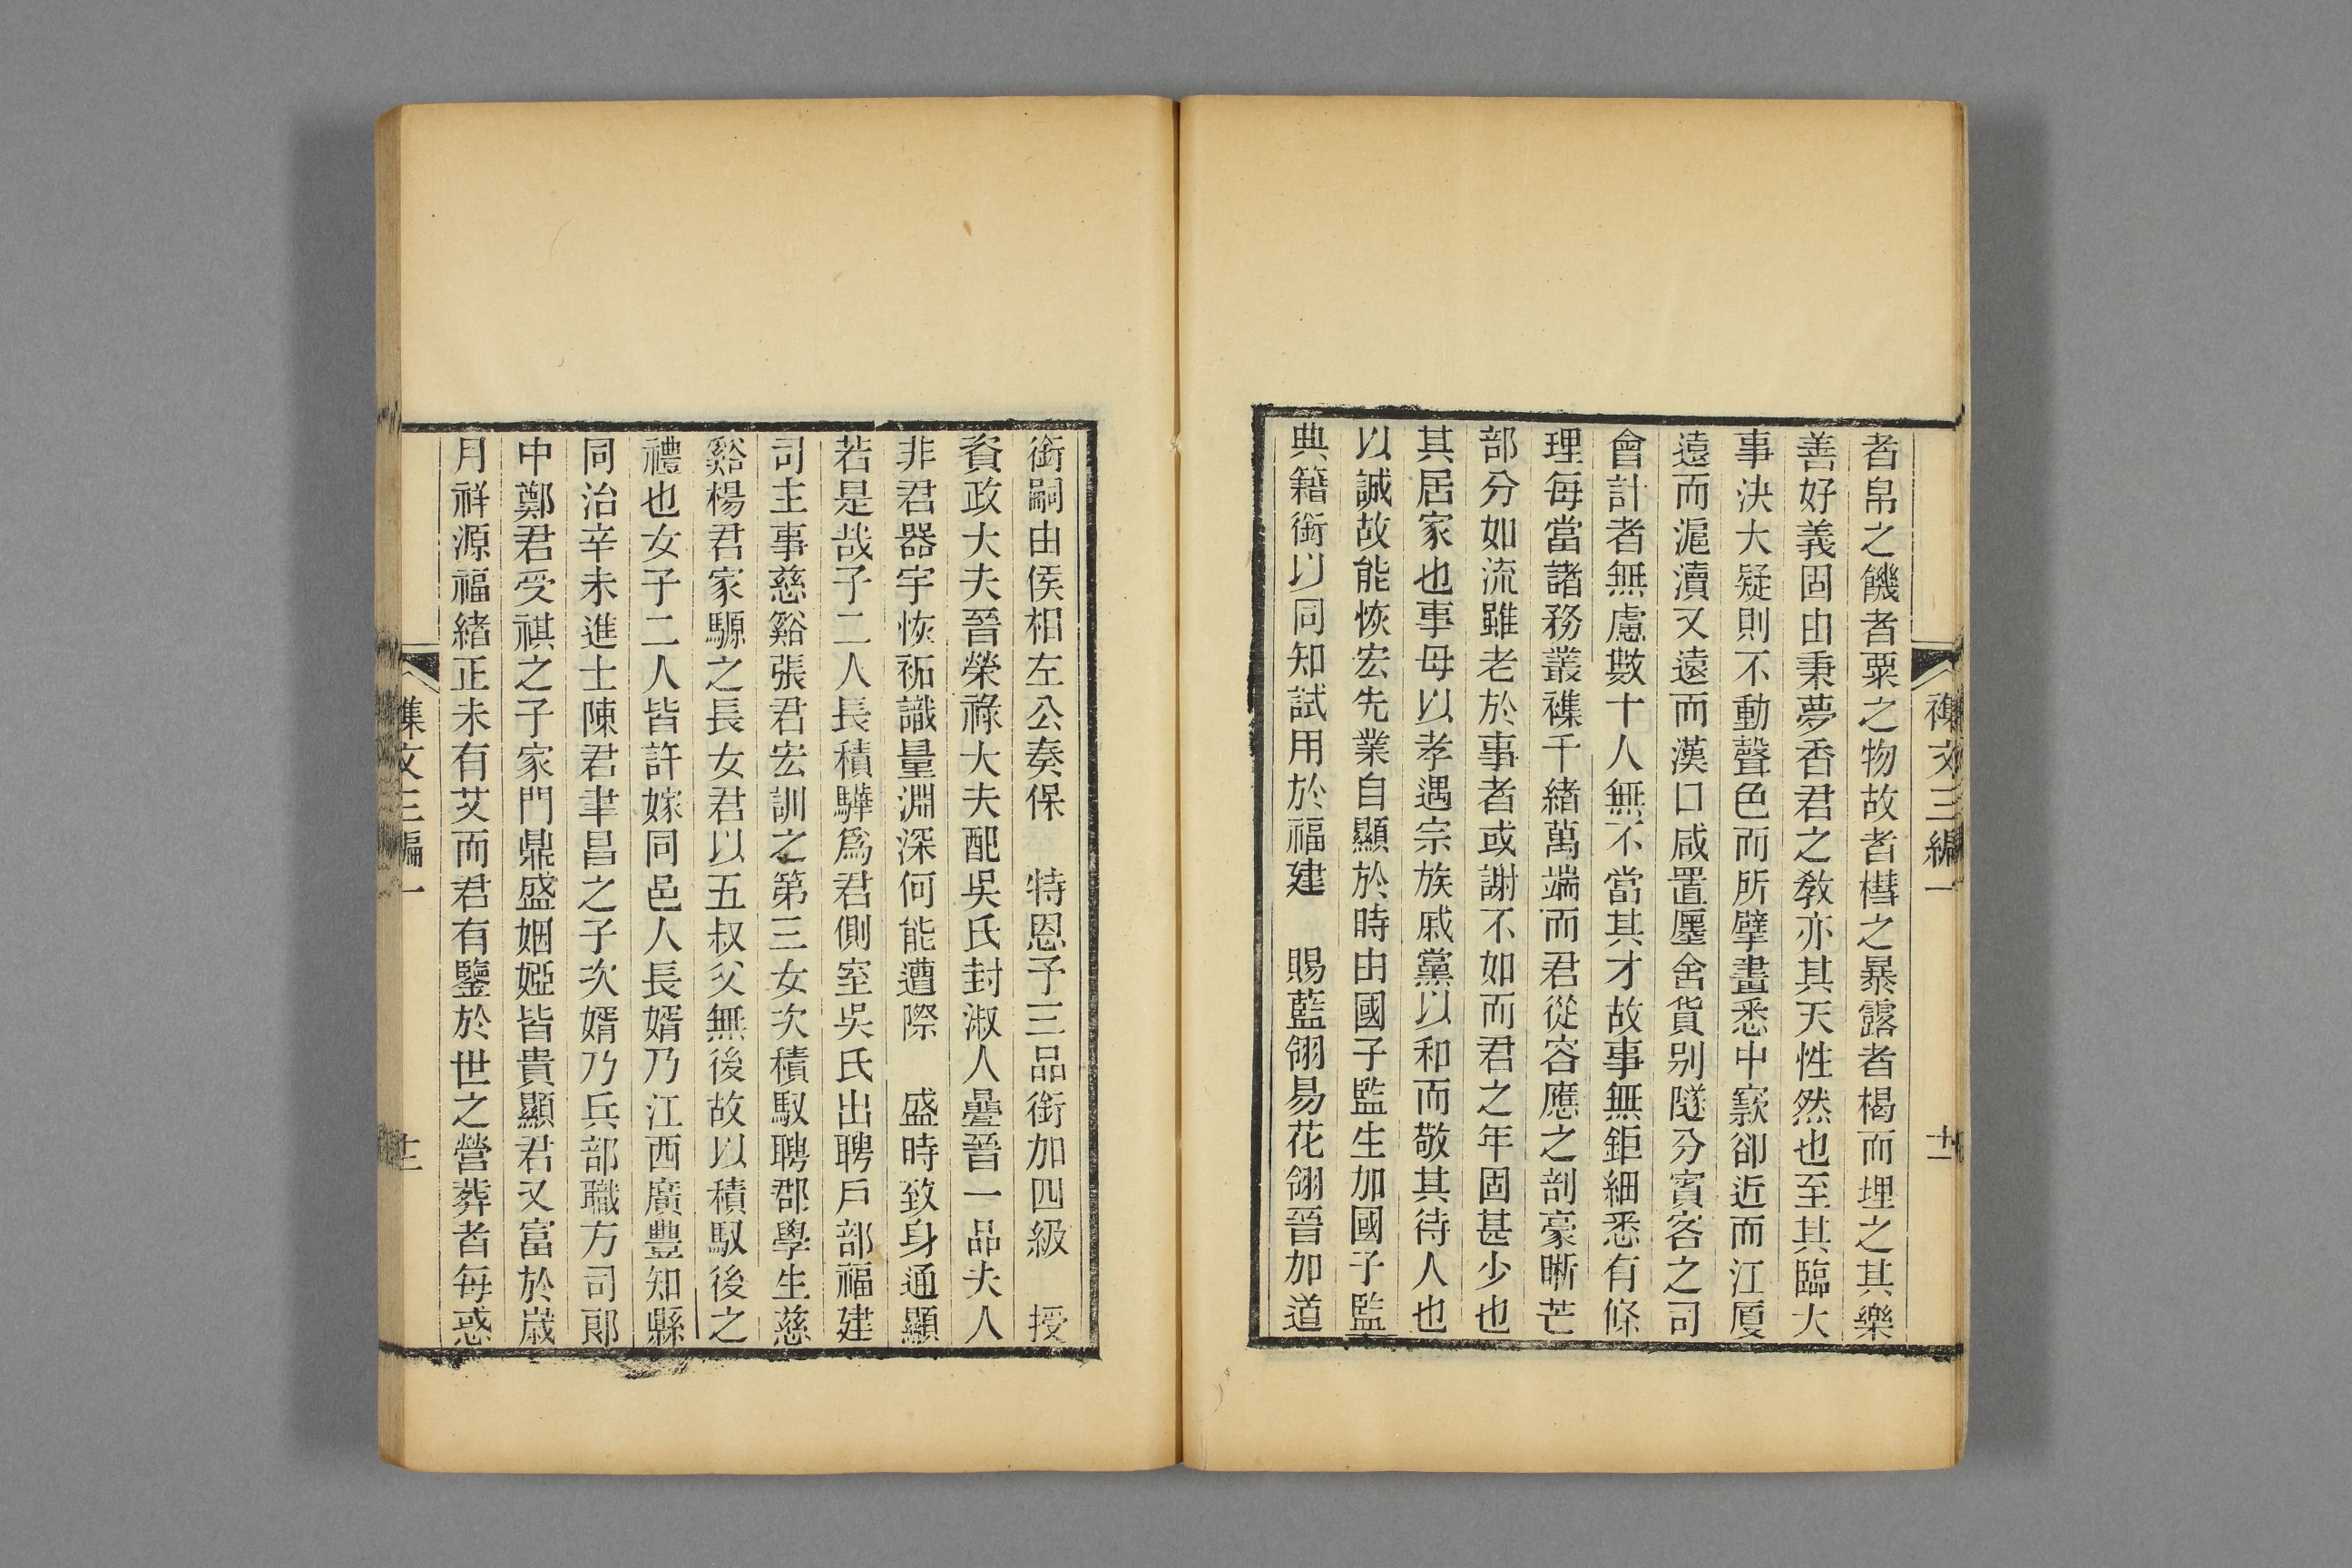 襍文三編一
十一
者帛之饑者粟之物故者槥之暴露者楬而埋之其樂
善好義固由秉夢香君之教亦其天性然也至其臨大
事決大疑則不動聲色而所擘畫悉中窾卻近而江厦
遠而滬瀆又遠而漢口咸置廛舍貨别隧分賓客之司
會計者無慮數十人無不當其才故事無鉅細悉有條
理每當諸務叢襍千緒萬端而君從容應之剖豪晰芒
部分如流雖老於事者或謝不如而君之年固甚少也
其居家也事母以孝遇宗族戚黨以和而敬其待人也
以誠故能恢宏先業自顯於時由國子監生加國子監
典籍銜以同知試用於福建　賜藍翎易花翎晉加道
銜嗣由侯相左公奏保　特恩予三品銜加四級　授
資政大夫晉榮祿大夫配吳氏封淑人曡晉一品夫人
非君器宇恢祏識量淵深何能遭際　盛時致身通顯
若是哉子二人長積驊爲君側室吳氏出聘戶部福建
司主事慈谿張君宏訓之第三女次積馭聘郡學生慈
谿楊君家騵之長女君以五叔父無後故以積馭後之
禮也女子二人皆許嫁同邑人長婿乃江西廣豐知縣
同治辛未進士陳君聿昌之子次婿乃兵部職方司郎
中鄭君受祺之子家門鼎盛姻婭皆貴顯君又富於歲
月祥源福緒正未有艾而君有鑒於世之營葬者每惑
襍文三編一